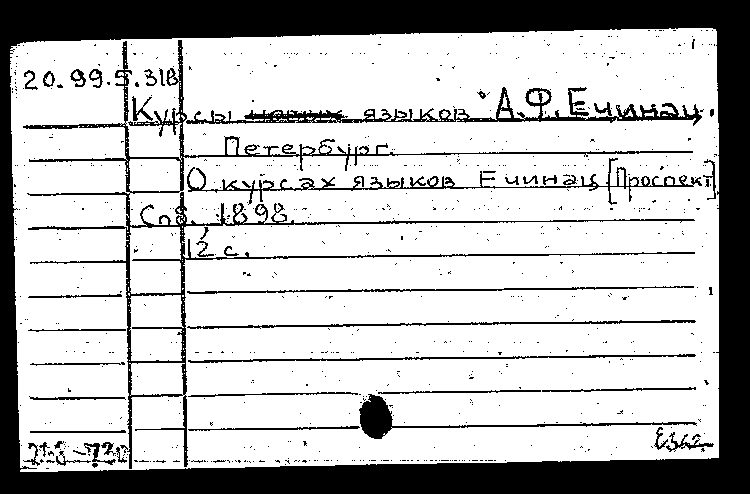 20.99.5.318
Курсы языков А.Ф.Ечинац.
Петербург.
О курсах языков Ечинац [Проспект]
Спб., 1898.
12 с.